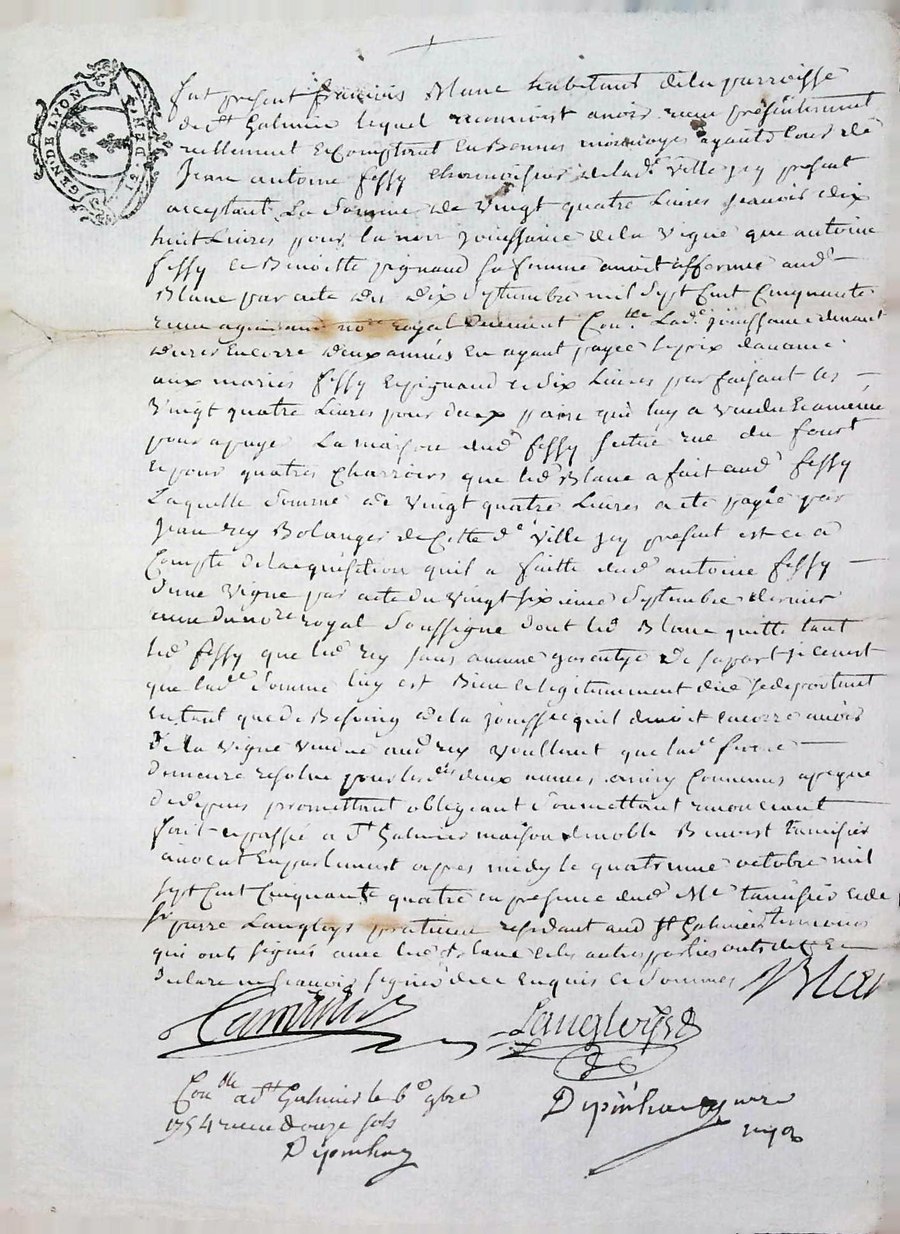 GEN. DE LYON
fut present françois Blanc habitant de la parroisse
de St Galmier lequel reconnoist avoir receu presentement
reellement et comptant en bonnes monnoyes ayants cours de
Jean antoine fessy chamoisier de lade ville icy present
acceptant La somme de vingt quatre Livres scavoir dix
huit Livres pour la non jouissance de la vigne que antoine
fessy et Benoitte pignaud sa femme avoit affermée aud
Blanc par acte du dix septembre mil sept cent cinquante
no.re Royal lade jouissance devant
durer encorre deux années en ayant payée le prix davance
aux mariés fessy et pignaud et six Livres parfaisant les
vingt quatre Livres pour deux qu'il luy a vendu et amenée
pour apuyer La maison dud fessy située rue du fourt
et pour quatres charrois que led Blanc a fait aud fessy
Laquelle somme de vingt quatre Livres a ete payée par
Jean rey Bolanger de Cette de ville icy present et ce a
Compte de lacquisition quil a faitte dud antoine fessy
d'une vigne par acte du vingt sixieme septembre dernier
receu du no.re royal soussigné dont led Blanc quitte tant
led fessy que led rey sans aucune garentye de sa part si ce nest
que lade somme luy est Bien et legitimement due se departant
en tant que de Besoing de la jouissce quil devoit encorre avoir
de la vigne vendue aud rey voullant que lade ferme
demeure resolue pour lesdes deux années ainsy convenus
promettant obligeant soumettant renonceant
fait et passée a St Galmier maison de noble Benoist Tamisier
avocat en parlement apres midy le quatrieme octobre mil
sept cent cinquante quatre en presence dud Me tamisier et de
Sr pierre Langloys praticien residant aud St Galmier temoins
qui onts signés avec led Blanc et les autres parties onts dit et
declaré ne scavoir signer de ce enquis et sommés
Blanc
Tamisier
Langloys
Conlle a St Galmier le 6e 8bre
1754 receu douze sols
Depinhac
Depinhac